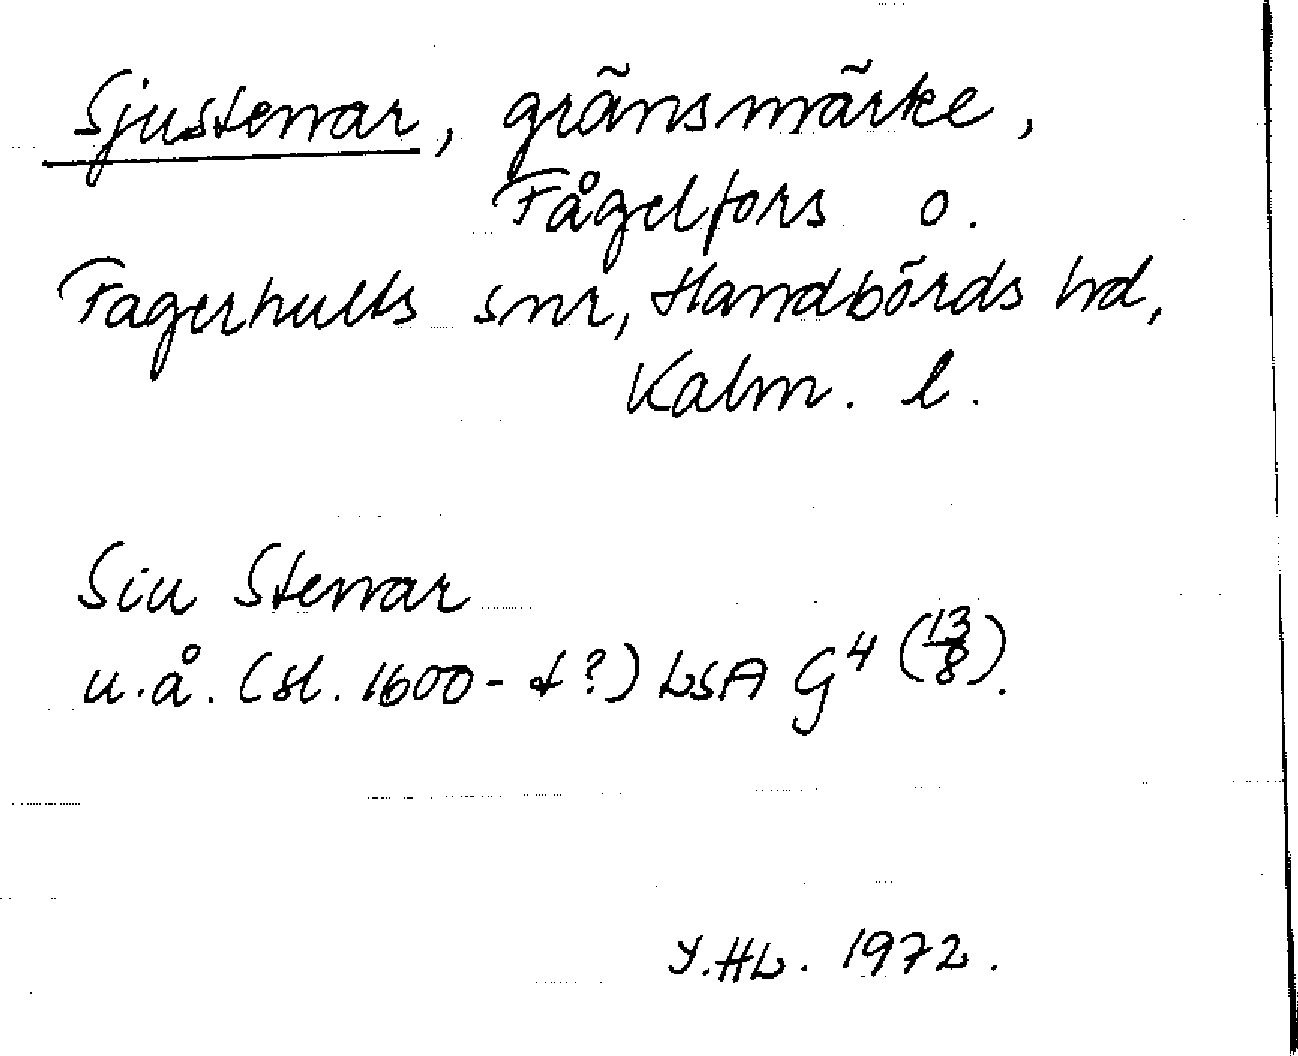 Sjustenar, gränsmärke,
Fågelfors o.
Fagerhults snr, Handbörds hd,
Kalm. l.
Siu Stenar
u.å. (sl. 1600-t?) LSA G4 (13/8).
Y.HL. 1972.